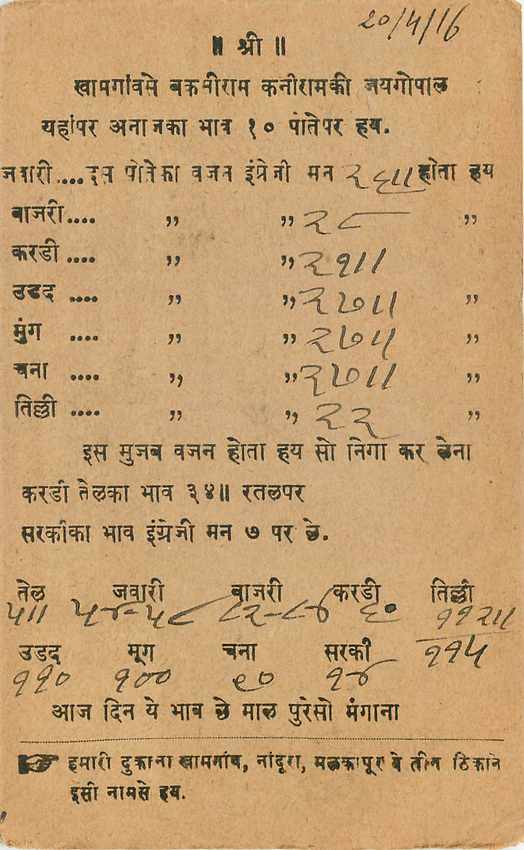 २०/५/16
॥ श्री ॥
खामगांवसे बकसीराम कनीरामकी जयगोपाल
यहांपर अनाजका भाव १० पोतेपर हय.
जवारी.... दस पोतेका वजन इंग्रेजी मन २६॥ होता हय
बाजरी.... ,, ,, २८ ,,
करडी .... ,, ,, २१॥
उडद .... ,, ,, २७॥ ,,
मुंग .... ,, ,, २७॥ ,,
चना .... ,, ,, २७॥ ,,
तिल्ली .... ,, ,, २२ ,,
इस मुजब वजन होता हय सो निगा कर लेना
करडी तेलका भाव ३४॥ रतलपर
सरकीका भाव इंग्रेजी मन ७ पर छे.
तेल जवारी बाजरी करडी तिल्ली
५॥ ५४-५८ ८२-८४ ६० ११२॥
११५
उडद मूग चना सरकी
११० १०० ९० १४
आज दिन ये भाव छे माल पुरेसो मंगाना
☞ हमारी दुकाना खामगांव, नांदूरा, मळकापूर ये तीन ठिकाने
इसी नामसे हय.